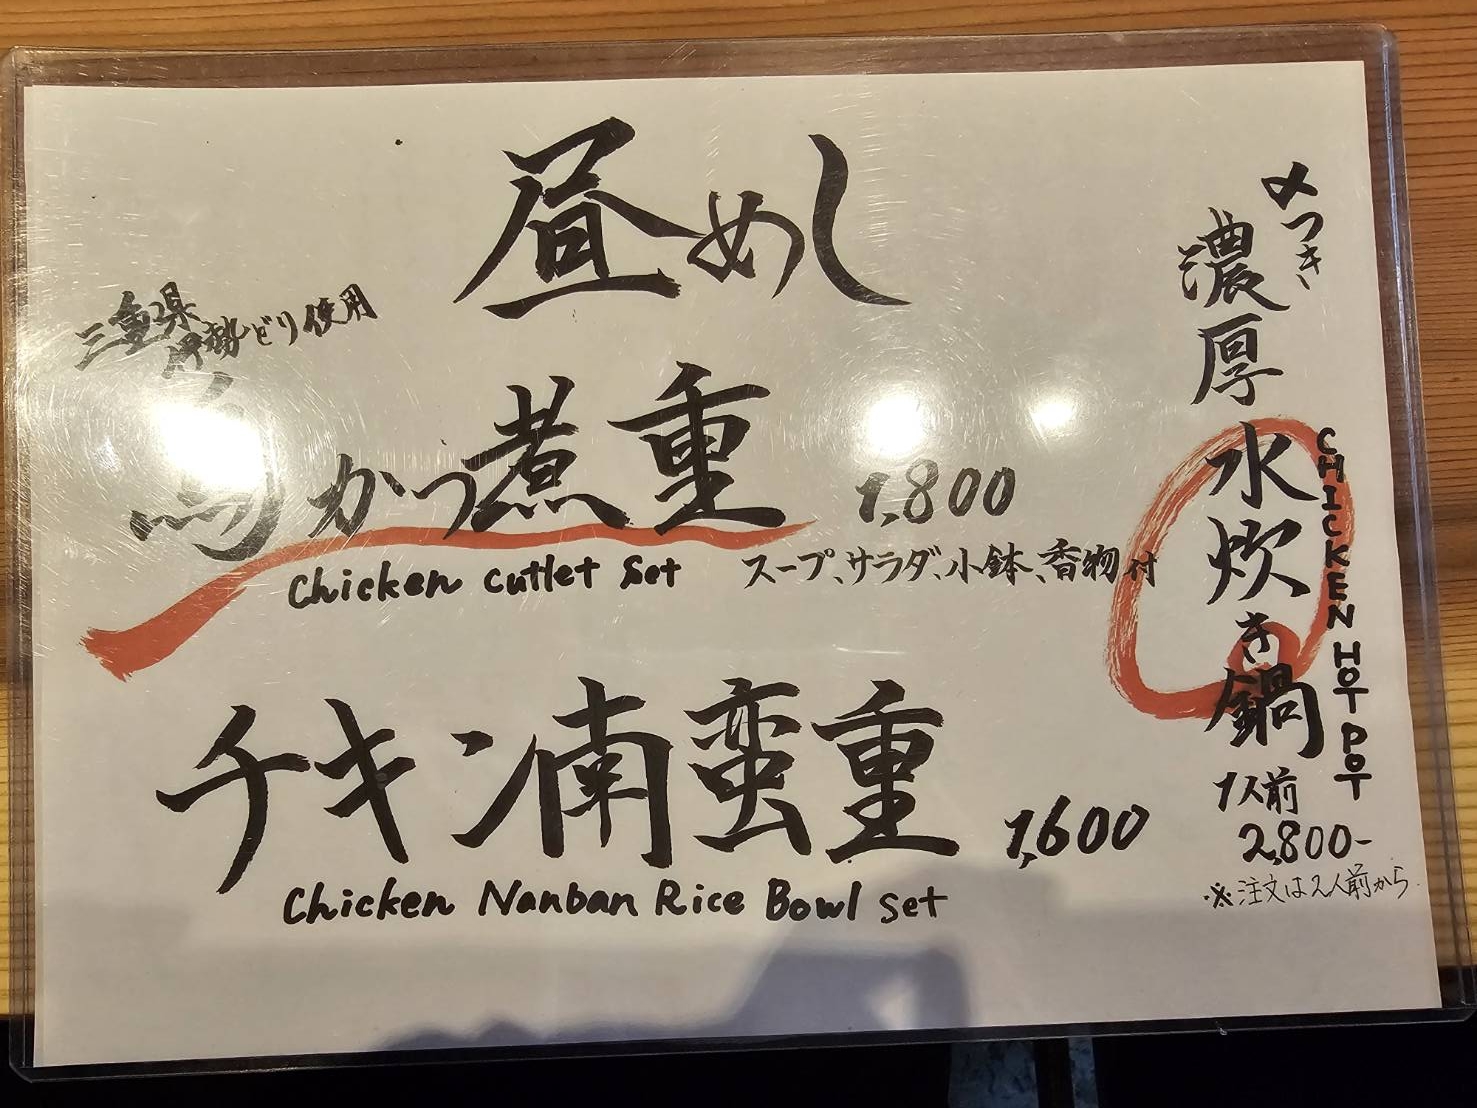 昼めし
三重県
伊勢どり使用
かつ煮重 1,800
Chicken cutlet set スープ、サラダ、小鉢、香物付
チキン南蛮重 1,600
Chicken Nanban Rice Bowl set
〆つき
濃厚水炊き鍋
CHICKEN HOT POT
1人前
2,800-
※注文は2人前から